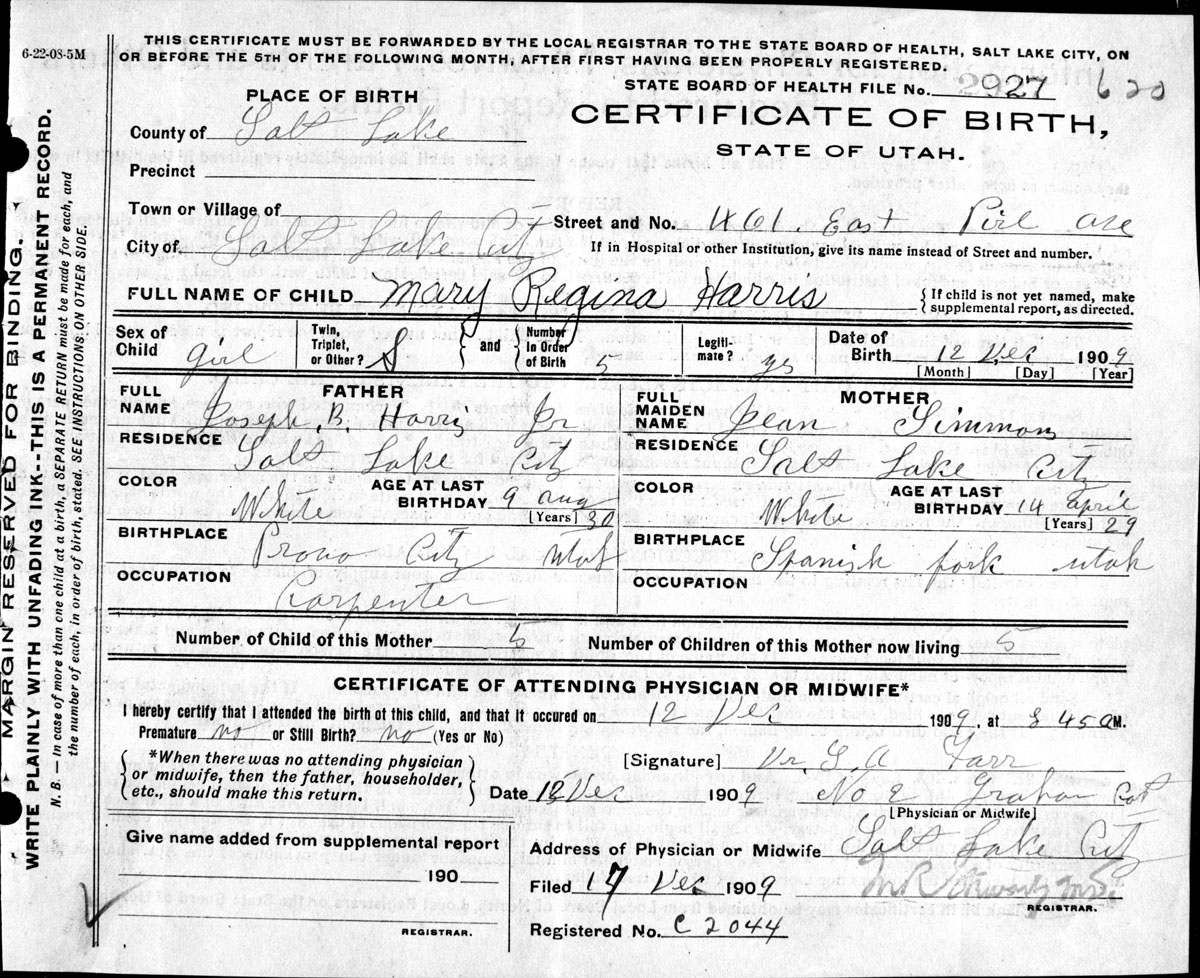 6-22-08-5M
THIS CERTIFICATE MUST BE FORWARDED BY THE LOCAL REGISTRAR TO THE STATE BOARD OF HEALTH, SALT LAKE CITY, ON
OR BEFORE THE 5TH OF THE FOLLOWING MONTH, AFTER FIRST HAVING BEEN PROPERLY REGISTERED.
STATE BOARD OF HEALTH FILE No. 2927 620
CERTIFICATE OF BIRTH,
STATE OF UTAH.
PLACE OF BIRTH
County of Salt Lake
Precinct
Town or Village of
Street and No. 461 East
City of Salt Lake City
If in Hospital or other Institution, give its name instead of Street and number.
FULL NAME OF CHILD Mary Regina Harris
{If child is not yet named, make
supplemental report, as directed.
Sex of Child girl
Twin, Triplet, or Other? S
and
Number in Order of Birth 5
Legitimate? ys
Date of Birth 12 Dec 1909
[Month] [Day] [Year]
FATHER
FULL NAME Joseph B. Harris Jr
RESIDENCE Salt Lake City
COLOR White
AGE AT LAST BIRTHDAY 9 aug 30
[Years]
BIRTHPLACE Provo City Utah
OCCUPATION Carpenter
MOTHER
FULL MAIDEN NAME Jean Simmons
RESIDENCE Salt Lake City
COLOR White
AGE AT LAST BIRTHDAY 14 April 29
[Years]
BIRTHPLACE Spanish fork utah
OCCUPATION
Number of Child of this Mother 5
Number of Children of this Mother now living 5
CERTIFICATE OF ATTENDING PHYSICIAN OR MIDWIFE*
I hereby certify that I attended the birth of this child, and that it occured on 12 Dec 1909, at 8 45 a M.
Premature no or Still Birth? no (Yes or No)
*When there was no attending physician
or midwife, then the father, householder,
etc., should make this return.
[Signature] Farr
Date 12 Dec 1909 No 2
[Physician or Midwife]
Give name added from supplemental report
190
REGISTRAR.
Address of Physician or Midwife Salt Lake City
Filed 17 Dec 1909
REGISTRAR.
Registered No. C 2044
MARGIN RESERVED FOR BINDING.
WRITE PLAINLY WITH UNFADING INK--THIS IS A PERMANENT RECORD.
N. B. — In case of more than one child at a birth, a SEPARATE RETURN must be made for each, and
the number of each, in order of birth, stated. SEE INSTRUCTIONS ON OTHER SIDE.